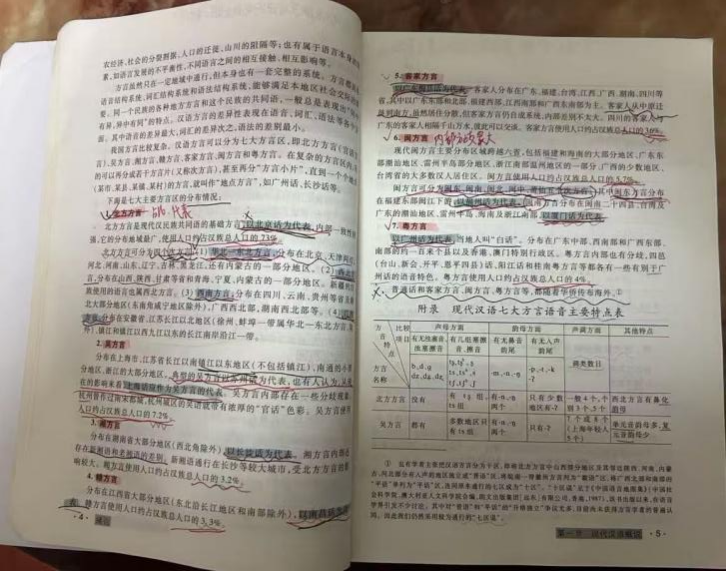 农经济,社会的分裂割据,人口的迁徙,山川的阻隔等;也有属于语言本身的
素,如语言发展的不平衡性,不同语言之间的相互接触、相互影响等。
方言虽然只在一定地域中通行,但本身也有一套完整的系统。方言都具
语音结构系统、词汇结构系统和语法结构系统,能够满足本地区社会交际的
要。同一个民族的各种地方方言和这个民族的共同语,一般总是表现出"同中
有异、异中有同"的特点。汉语方言的差异性表现在语音、词汇、语法等各个
面。其中语音的差异最大,词汇的差异次之,语法的差别最小。
我国方言比较复杂。汉语方言可以分为七大方言区,即北方方言
言)、吴方言、湘方言、赣方言、客家方言、闽方言和粤方言。在复杂的方言区内,
的可以再分成若干方言片(又称次方言),甚至再分"方言小片",直到一个个地
(某市、某县、某镇、某村)的方言,就叫作"地点方言",如广州话、长沙话等。
下面是七大主要方言区的分布情况:
1. 北方方言 代表
北方方言是现代汉民族共同语的基础方言,以北京话为代表,内部一致性
强,它的分布地域最广,使用人口约占汉族总人口的73%。
北方方言可分为 (1)华北—东北方言,分布在北京、天津
河北、河南、山东、辽宁、吉林、黑龙江,还有内蒙古的一部分地区。(2)
言,分布在山西、陕西、甘肃等省和青海、宁夏、内蒙古的一部分地区。新疆
族使用的语言也属西北方言。(3)西南方言,分布在四川、云南、贵州等省及湖
北大部分地区(东南角咸宁地区除外),广西西北部,湖南西北部等。(4)
方言,分布在安徽省、江苏长江以北地区(徐州、蚌埠一带属华北—东北方言,除
外),镇江和镇江以西九江以东的长江南岸沿江一带。
2. 吴方言
分布在上海市,江苏省长江以南镇江以东地区(不包括镇江),南通的小部
分地区,浙江的大部分地区。典型的吴方言以苏州话为代表,也有人认为,从现
在的影响来看,上海话应作为吴方言的代表。吴方言内部存在一些分歧现象,
杭州曾作过南宋都城,杭州城区的吴语就带有浓厚的"官话"色彩。吴方言使用
人口约占汉族总人口的7.2%。
3. 湘方言
分布在湖南省大部分地区(西北角除外),以长沙话为代表。湘方言内部还
存在新湘语和老湘语的差别。新湘语通行在长沙等较大城市,受北方方言的影
响较大。湘方言使用人口约占汉族总人口的3.2%。
4. 赣方言
分布在江西省大部分地区(东北沿长江地区和南部除外),以南昌话为
表。赣方言使用人口约占汉族总人口的3.3%。
· 4 · 绪论
5. 客家方言
以广东梅县话为代表。客家人分布在广东、福建、台湾、江西、广西、湖南、四川等
省,其中以广东东部和北部、福建西部、江西南部和广西东南部为主。客家人从中原迁
徙到南方,虽然居住分散,但客家方言仍自成系统,内部差别不太大。四川的客家人与
广东的客家人相隔千山万水,彼此可以交谈。客家方言使用人口约占汉族总人口的3.6%。
6. 闽方言 内部分歧最大
现代闽方言主要分布区域跨越六省,包括福建和海南的大部分地区,广东东
部潮汕地区、雷州半岛部分地区,浙江南部温州地区的一部分,广西的少数地区,
台湾省的大多数汉人居住区。闽方言使用人口约占汉族总人口的5.7%。
闽方言可分为闽东、闽南、闽北、闽中、莆仙五个次方言。其中闽东方言分布
在福建东部闽江下游,以福州话为代表。闽南方言分布在闽南二十四县、台湾及
广东的潮汕地区、雷州半岛、海南及浙江南部,以厦门话为代表。
7. 粤方言
以广州话为代表,当地人叫"白话"。分布在广东中部、西南部和广西东部、
南部的约一百来个县以及香港、澳门特别行政区。粤方言内部也有分歧,四邑
(台山、新会、开平、恩平四县)话、阳江话和桂南粤方言等都各有一些有别于广
州话的语音特色。粤方言使用人口约占汉族总人口的4%。
普通话和客家方言、闽方言、粤方言等,都随着华侨传布海外。①
附录 现代汉语七大方言语音主要特点表
方言特点 比较项目 声母方面 韵母方面 声调方面 其他特点
方言名称 有无浊塞、浊塞擦音 有几组塞擦音、擦音 有无鼻音韵尾 有无入声韵尾
b、d、g dz、dʐ、dʑ -m、-n、-ŋ -p、-t、-k -ʔ 调类数目
北方方言 没有 有-n、-ŋ两个 只有少数地区有-ʔ 一般4个,个别3个、5个 西北方言有鼻化韵母
吴方言 都有 多数地区只有ts组 有-n、-ŋ两个 只有-ʔ 7个或8个(上海年轻人5个) 单元音韵母多,复元音韵母少
第一节 现代汉语概说 · 5 ·